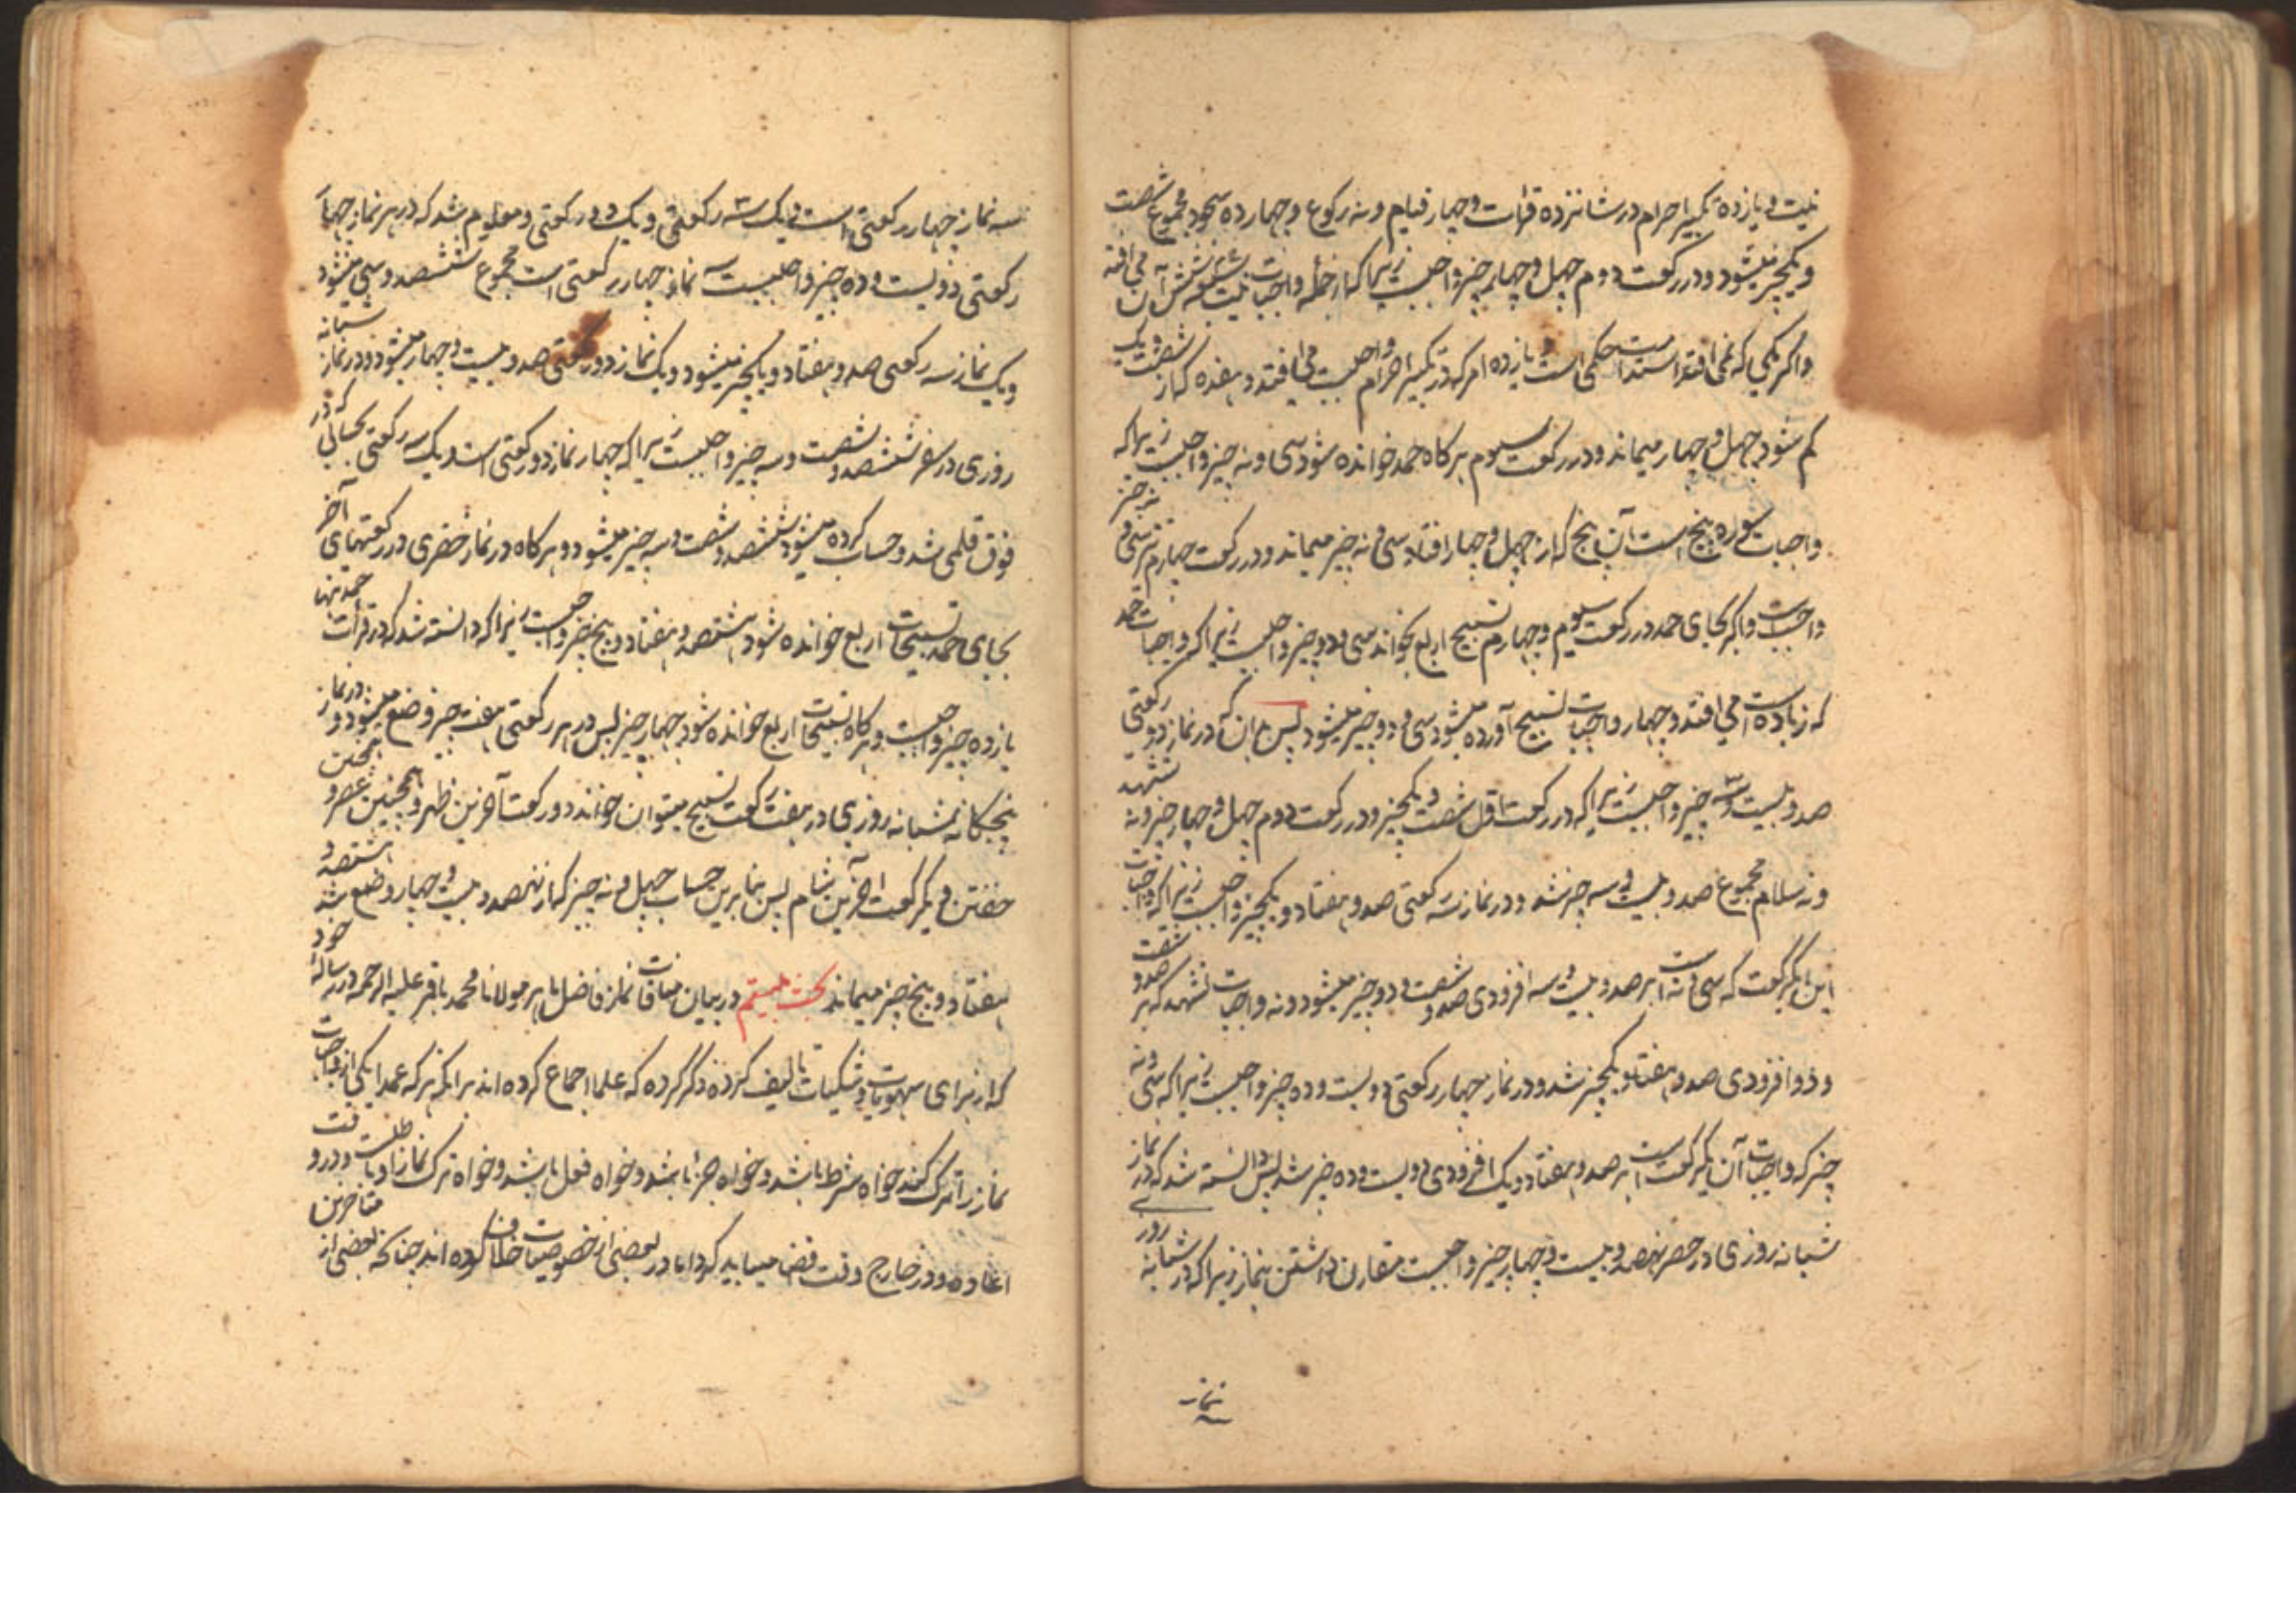 نیت و یازده تکبیر احرام در شانزده قرات و چهار قیام و نه رکوع و چهارده سجود مجموع شصت
و یکچیز میشود و در رکعت دوم چهل و چهار چیز واجبست زیرا که از جمله واجبات نیت شش آن می افتد
و اگر یکی که نمی افتد استدامت حکمی است و یازده امر که در تکبیر احرام واجبست می افتد و هفده که از شصت و یک
کم شود چهل و چهار میماند و در رکعت سیوم هر کاه حمد خوانده شود سی و نه چیز واجبست زیرا که
واجبات سوره پنج است آن پنج که از چهل و چهار افتاد سی و نه چیز میماند و در رکعت چهارم نیز سی و نه چیز
واجبست و اگر بجای حمد در رکعت سیوم و چهارم تسبیح اربع بخواند سی و دو چیز واجبست زیرا که واجبات حمد
که زیاده است می افتد و چهار واجبات تسبیح آورده میشود سی و دو چیز میشود پس بدان که در نماز دو رکعتی
صد و بیست و سه چیز واجبست زیرا که در رکعت اول شصت و یکچیز و در رکعت دوم چهل و چهار چیز و نه تشهد
و نه سلام مجموع صد و بیست و سه چیز شد و در نماز سه رکعتی صد و هفتاد و یکچیز واجبست زیرا که واجبات
این یکرکعت که سی و نه است بر صد و بیست و سه افزودی صد و شصت و دو چیز میشود و نه واجبات تشهد که بر صد و شصت
و دو افزودی صد و هفتاد و یکچیز شد و در نماز چهار رکعتی دویست و ده چیز واجبست زیرا که سی و نه
چیز که واجبات آن یکرکعت است بر صد و هفتاد و یک افزودی دویست و ده چیز شد پس دانسته شد که در نماز
شبانه روزی در حضر نهصد و بیست و چهار چیز واجبست مقارن داشتن بنماز زیرا که در شبانه روز
سه نماز چهار رکعتی است و یک سه رکعتی و یک دو رکعتی و معلوم شد که در هر نماز چهار
رکعتی دویست و ده چیز واجبست سه نماز چهار رکعتی است مجموع ششصد و سی میشود
و یک نماز سه رکعتی صد و هفتاد و یکچیز میشود و یک نماز دو رکعتی صد و بیست و چهار میشود و در نماز شبانه
روزی در سفر ششصد و شصت و سه چیز واجبست زیرا که چهار نماز دو رکعتی است و یک سه رکعتی بحسابی که در
فوق قلمی شد و حساب کرده میشود ششصد و شصت و سه چیز میشود و هر کاه در نماز حضری در رکعتهای آخر
بجای حمد تسبیحات اربع خوانده شود هشتصد و هفتاد و پنج چیز واجبست زیرا که دانسته شد که در قرات حمد تنها
یازده چیز واجبست و هر کاه تسبیحات اربع خوانده شود چهار چیز پس در هر رکعتی هفت چیز وضع میشود و در نماز
پنجکانه شبانه روزی در هفت رکعت تسبیح میتوان خواند دو رکعت آخرین ظهر و همچنین عصر و همچنین
خفتن و یکرکعت آخرین شام پس بنابرین حساب چهل و نه چیز که از نهصد و بیست و چهار وضع شد هشتصد و
هفتاد و پنج چیز میماند بحث بیستم در بیان منافات نماز فاضل ماهر مولانا محمد باقر علیه الرحمه در رساله خود
که از برای سهویات و شکیات تالیف کرده ذکر کرده که علما اجماع کرده اند بر انکه هر که عمدا یکی از واجبات
نماز را ترک کند خواه شرط باشد و خواه جزء باشد و خواه فعل باشد و خواه ترک نماز او باطلست و در وقت
اعاده و در خارج وقت قضا میباید کرد اما در بعضی از خصوصیات خلاف کرده اند چنانکه بعضی از متاخرین